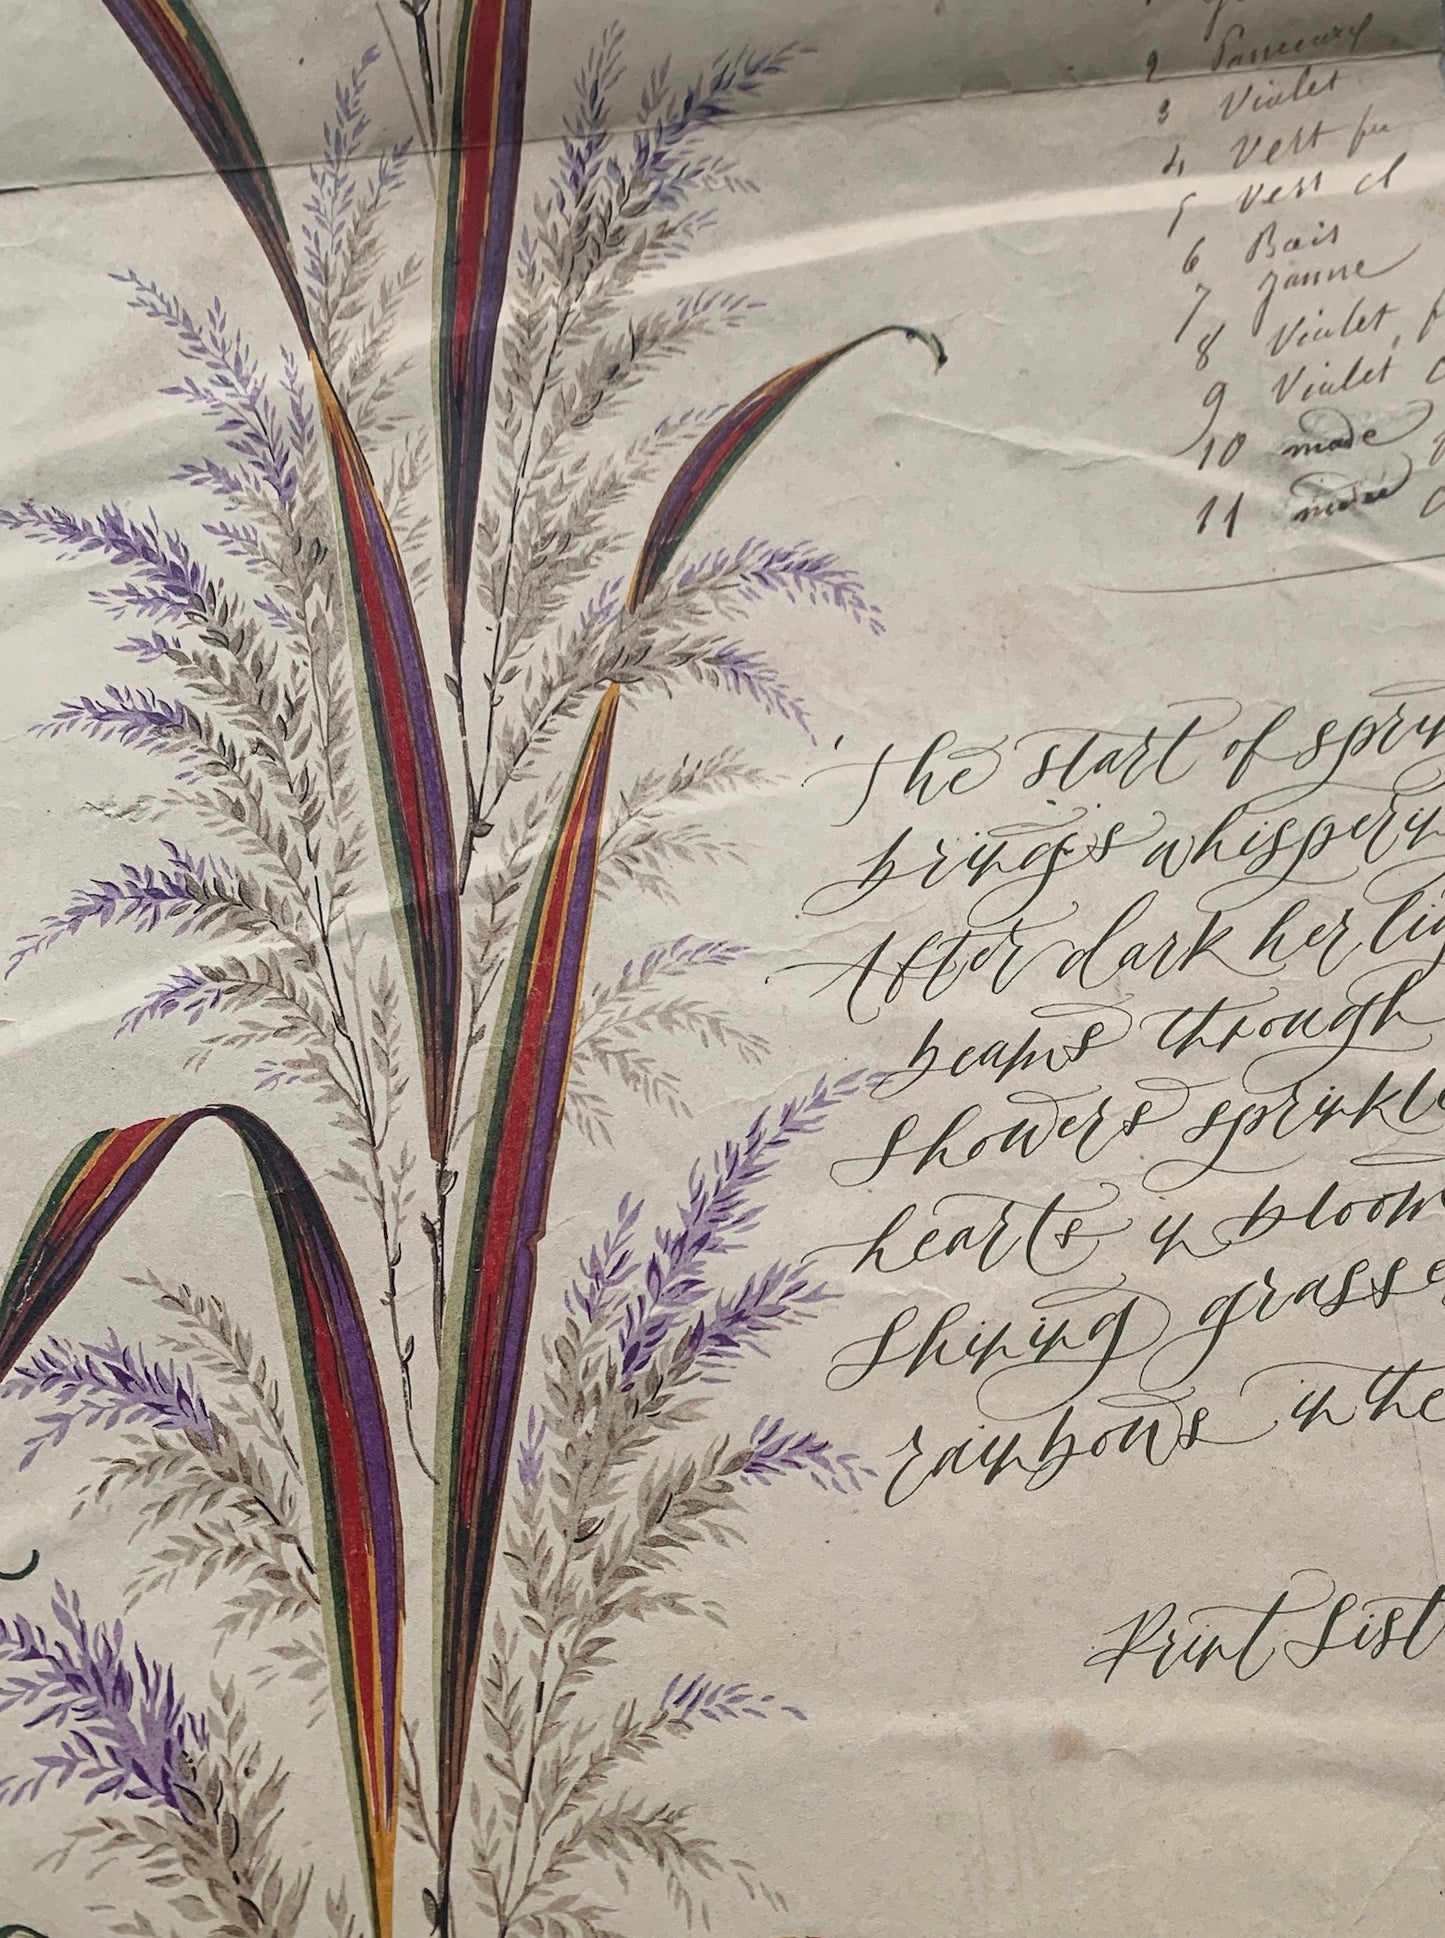 2 Ponceau
3 Violet
4 Vert fu
5 Vert cl
6 Bois
7 Jaune
8 Violet, f
9 Violet c
10 mode f
11 mode c
'The start of sprin
brings whisperin
After dark her lig
beams through
Showers sprinkle
hearts in bloom
Shining grasse
rainbows in the
Print List